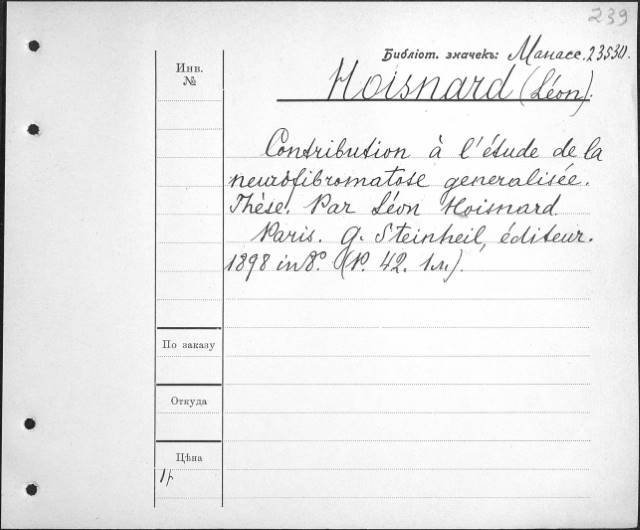 239
Библіот. значекъ: Манасс. 23530.
Инв.
№
Hoisnard (Léon).
Contribution à l'étude de la
neurofibromatose generalisée.
Thèse. Par Léon Hoisnard.
Paris. G. Steinheil, éditeur.
1898 in 8°. (P. 42. 1м).
По заказу
Откуда
Цѣна
1р